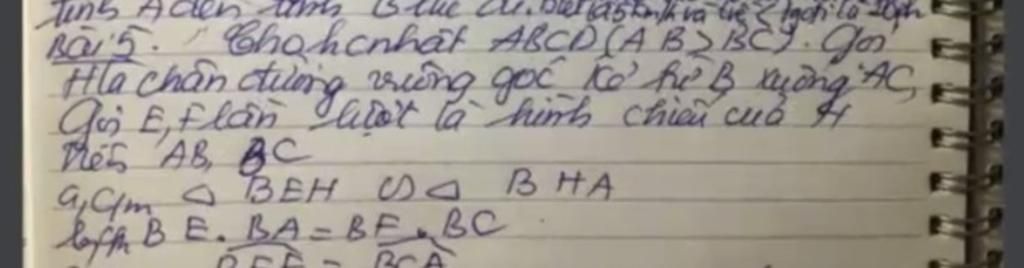 Bài 5. Cho hcnhật ABCD (AB > BC). Gọi
H là chân đường vuông góc kẻ từ B xuống AC,
Gọi E, F lần lượt là hình chiếu của H
trên AB, BC
a, C/m △ BEH ∽ △ BHA
b, c/m BE. BA = BF. BC
BEF = BCA